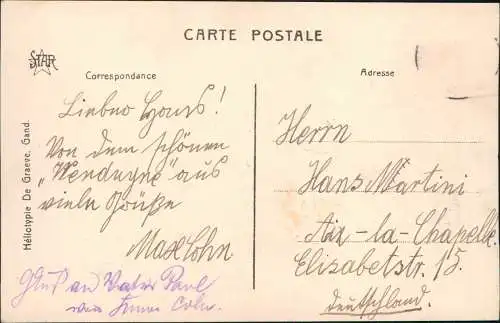 CARTE POSTALE
STAR
Correspondance
Adresse
Héliotypie De Graeve, Gand.
Lieber Hans!
Von dem schönen
„Wenduyne" aus
viele Grüße
Max Cohn
Gruß an Vater Paul
von Cohn.
Herrn
Hans Martini
Aix-la-Chapelle.
Elisabetstr. 15.
Deutschland.